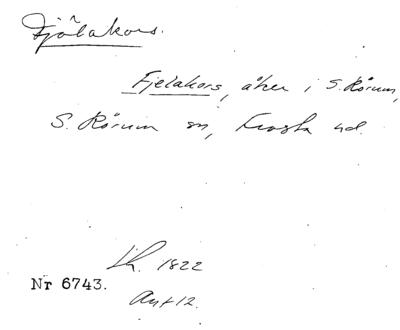 Fjölakors.
Fjelakors, åker i S. Rörum,
S. Rörum sn, Frosta hd.
Lh. 1822
Nr 6743.
Akt 12.